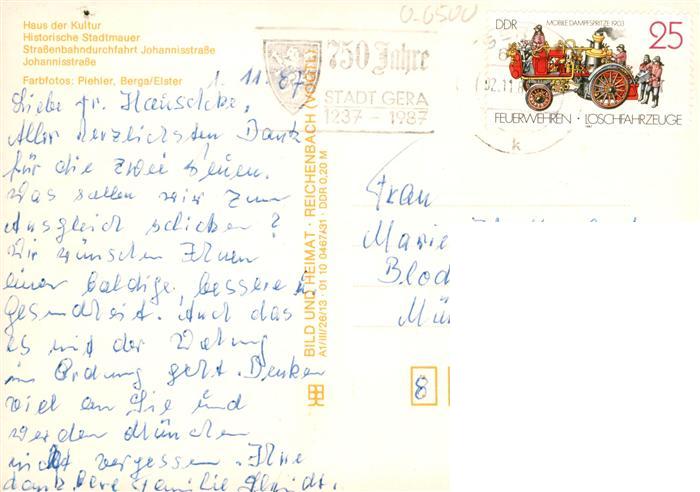 Haus der Kultur
Historische Stadtmauer
Straßenbahndurchfahrt Johannisstraße
Johannisstraße
Farbfotos: Piehler, Berga/Elster
1. 11. 87
Liebe Fr. Hauschke,
Aller herzlichsten Dank
für die zwei
Was sollen wir zum
Ausgleich schicken?
Wir wünschen Ihnen
einer baldige, bessere
Gesundheit. Auch das
es mit der
in Ordnung geht. Denken
viel an Sie und
werden München
nicht vergessen. Ihre
dankbare Familie
BILD UND HEIMAT · REICHENBACH (VOGTL)
A1/III/26/13 · 01 10 0467A31 · DDR 0,20 M
0-6500
750 Jahre
STADT GERA
1237 - 1987
DDR
MOBILE DAMPFSPRITZE 1903
25
FEUERWEHREN · LÖSCHFAHRZEUGE
1987
k
Frau
Marie
Blod
Mü
8